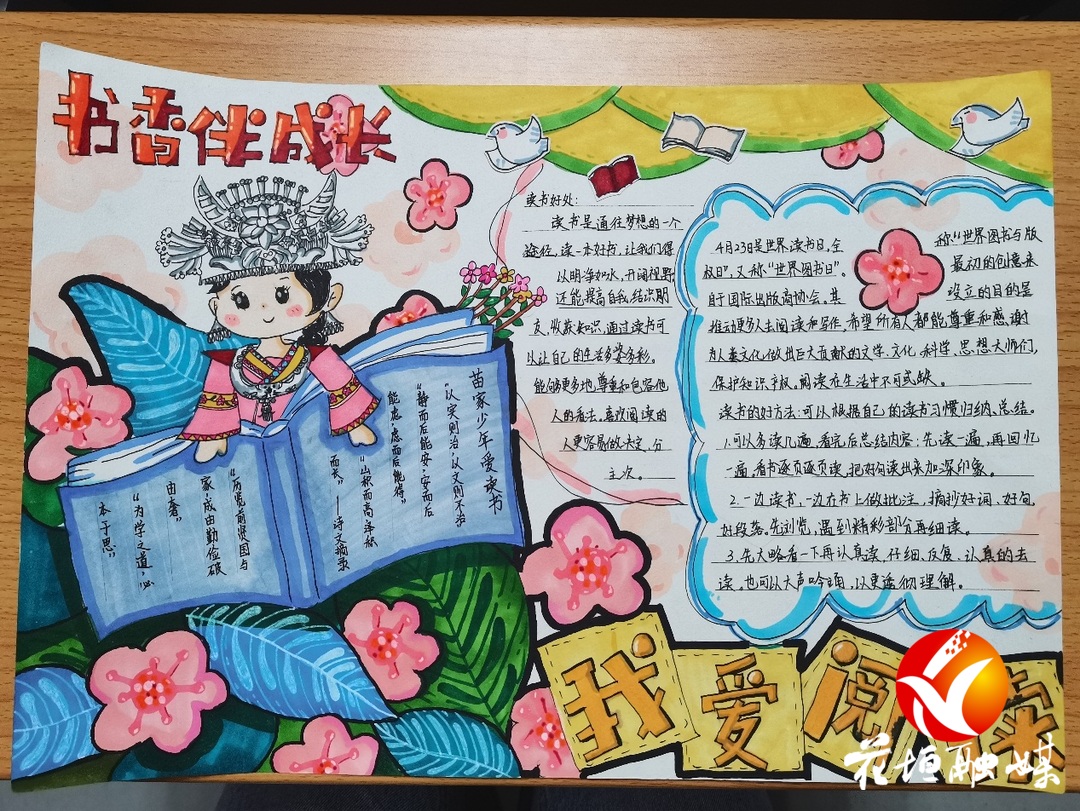 书香伴成长
读书好处:
读书是通往梦想的一个
途径,读一本好书,让我们得
以明净如水,开阔视野
还能提高自我,结识朋
友,收获知识,通过读书可
以让自己的生活多姿多彩。
能够更多地尊重和包容他
人的看法,喜欢阅读的
人更容易做大定,分
主次。
4月23日是世界读书日,全称"世界图书与版
权日",又称"世界图书日"。最初的创意来
自于国际出版商协会,其设立的目的是
推动更多人去阅读和写作,希望所有人都能尊重和感谢
为人类文化做出巨大贡献的文学、文化、科学、思想大师们,
保护知识产权。阅读在生活中不可或缺。
读书的好方法:可以根据自己的读书习惯归纳、总结。
1.可以多读几遍,看完后总结内容:先读一遍,再回忆
一遍,看书逐页逐页读,把好句读出来加深印象。
2.一边读书,一边在书上做批注,摘抄好词、好句,
好段落。先浏览,遇到精彩部分再细读。
3.先大略看一下再认真读,仔细、反复、认真的去
读。也可以大声吟诵,以更透彻理解。
苗家少年爱读书
"以实则治,以文则不治
"静而后能安,安而后
能虑,虑而后能得"
"山积而高,泽积
而长" ——诗文摘录
"历览前贤国与
家,成由勤俭破
由奢"
"为学之道,必
本于思"
我爱阅
花垣融媒